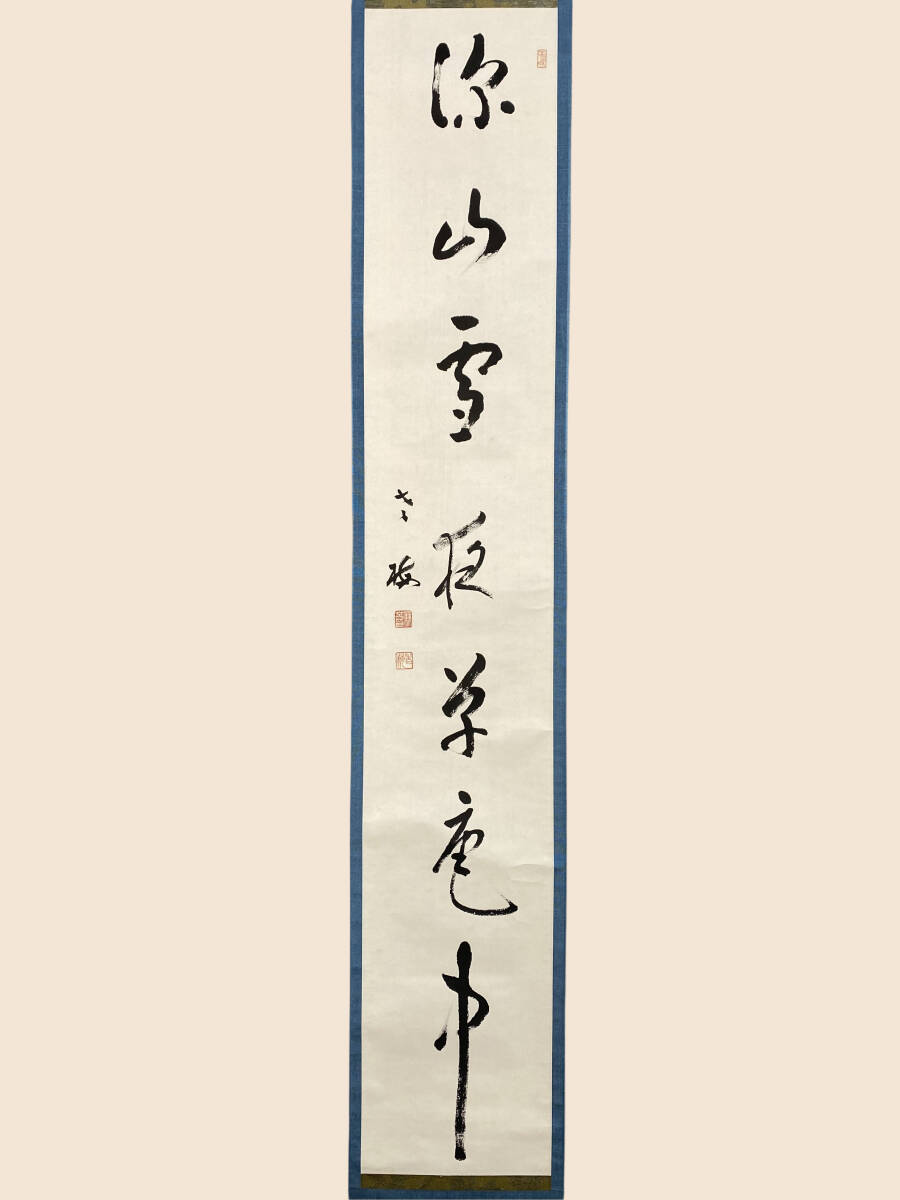 深山雪夜草庵中
老梅